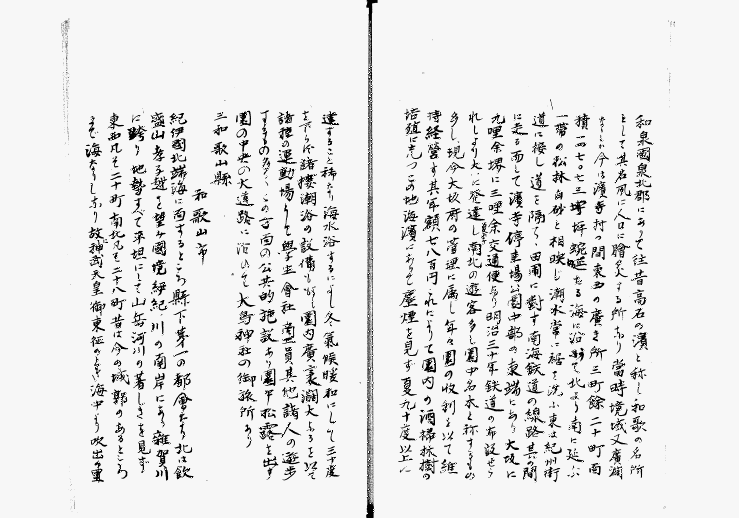 和泉國泉北郡にありて往昔高石の濱と称し和歌の名所
として其名夙に人口に膾炙する所なり當時境域又廣濶
なりしが今は濱寺村の間東西の廣き所三町餘二十町面
積一四七〇七三坪蜿蜒たる海に沿ふて北より南に延ぶ
一帯の松林白砂と相映じ潮水常に裾を洗ふ東は紀州街
道に接し道を隔て田圃に對す南海鉄道の線路其の間
に走る而して濱寺停車場公園中部の東端にあり大坂に
九哩余堺に三哩余交通便なり明治三十年鉄道の布設せら
れしより大に発達し南北の遊客多し園中名木と称するもの
多し現今大坂府の管理に属し年々園の収利を以て維
持経営す其年額七八百円これによりて園内の洒掃林樹の
培植に充つこの地海濱にありて塵煙を見ず夏九十度以上に
達すること稀なり海水浴するによし冬氣候暖和にして三十度
を下らず諸楼潮浴の設備もあり園内廣裏濶大なるを以て
諸種の運動場として學生會社商工員其他諸人の遊歩
するもの多くこの方面の公共的施設あり園中松露を出す
園の中央の大道路に沿ひて大鳥神社の御旅所あり
三和歌山縣
和歌山市
紀伊國北端海に面するところ縣下第一の都會なり北は飲
盛山孝子越を望み國境紀川の南岸にあり雜賀川
に跨り地勢すべて平坦にして山岳河川の著しきを見ず
東西凡そ二十町南北凡そ二十八町昔は今の城郭のあるところ
まで海なりしなり故神武天皇御東征のときは海中より吹出の東